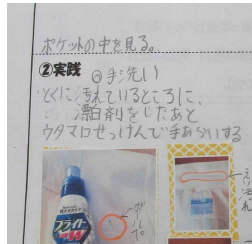 ポケットの中を見る。
②実践 ◎手洗い
とくに汚れているところに、
漂白剤をしたあと
ウタマロせっけんで手あらいする
ブライト
W